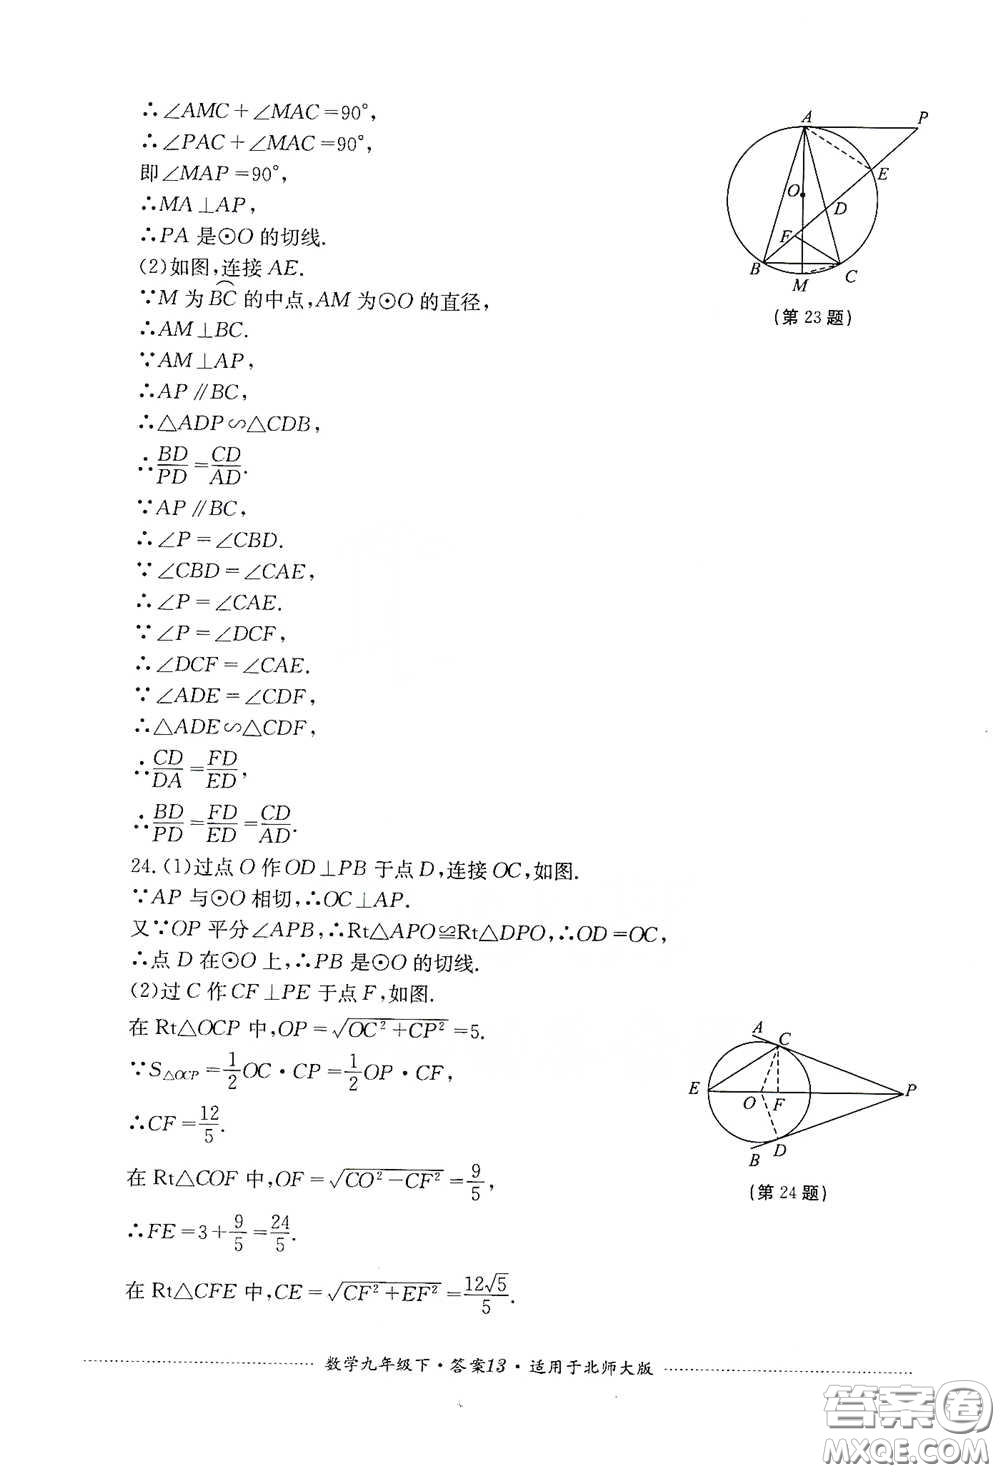 ∴∠AMC+∠MAC=90°,
∴∠PAC+∠MAC=90°,
即∠MAP=90°,
∴MA⊥AP,
∴PA 是⊙O 的切线.
(2)如图,连接 AE.
∵M 为 \overset{\frown}{BC} 的中点,AM 为⊙O 的直径,
∴AM⊥BC.
∵AM⊥AP,
∴AP∥BC,
∴△ADP∽△CDB,
∴BD/PD=CD/AD.
∵AP∥BC,
∴∠P=∠CBD.
∵∠CBD=∠CAE,
∴∠P=∠CAE.
∵∠P=∠DCF,
∴∠DCF=∠CAE.
∵∠ADE=∠CDF,
∴△ADE∽△CDF,
∴CD/DA=FD/ED,
∴BD/PD=FD/ED=CD/AD.
A
P
E
O
D
F
B
C
M
(第 23 题)
24.(1)过点 O 作 OD⊥PB 于点 D,连接 OC,如图.
∵AP 与⊙O 相切,∴OC⊥AP.
又∵OP 平分∠APB,∴Rt△APO≌Rt△DPO,∴OD=OC,
∴点 D 在⊙O 上,∴PB 是⊙O 的切线.
(2)过 C 作 CF⊥PE 于点 F,如图.
在 Rt△OCP 中,OP=√(OC²+CP²)=5.
∵S△OCP=1/2 OC·CP=1/2 OP·CF,
∴CF=12/5.
在 Rt△COF 中,OF=√(CO²−CF²)=9/5,
∴FE=3+9/5=24/5.
在 Rt△CFE 中,CE=√(CF²+EF²)=12√5/5.
A
C
E
O
F
P
B
D
(第 24 题)
数学九年级下·答案13·适用于北师大版
答案圈
MXQE.COM